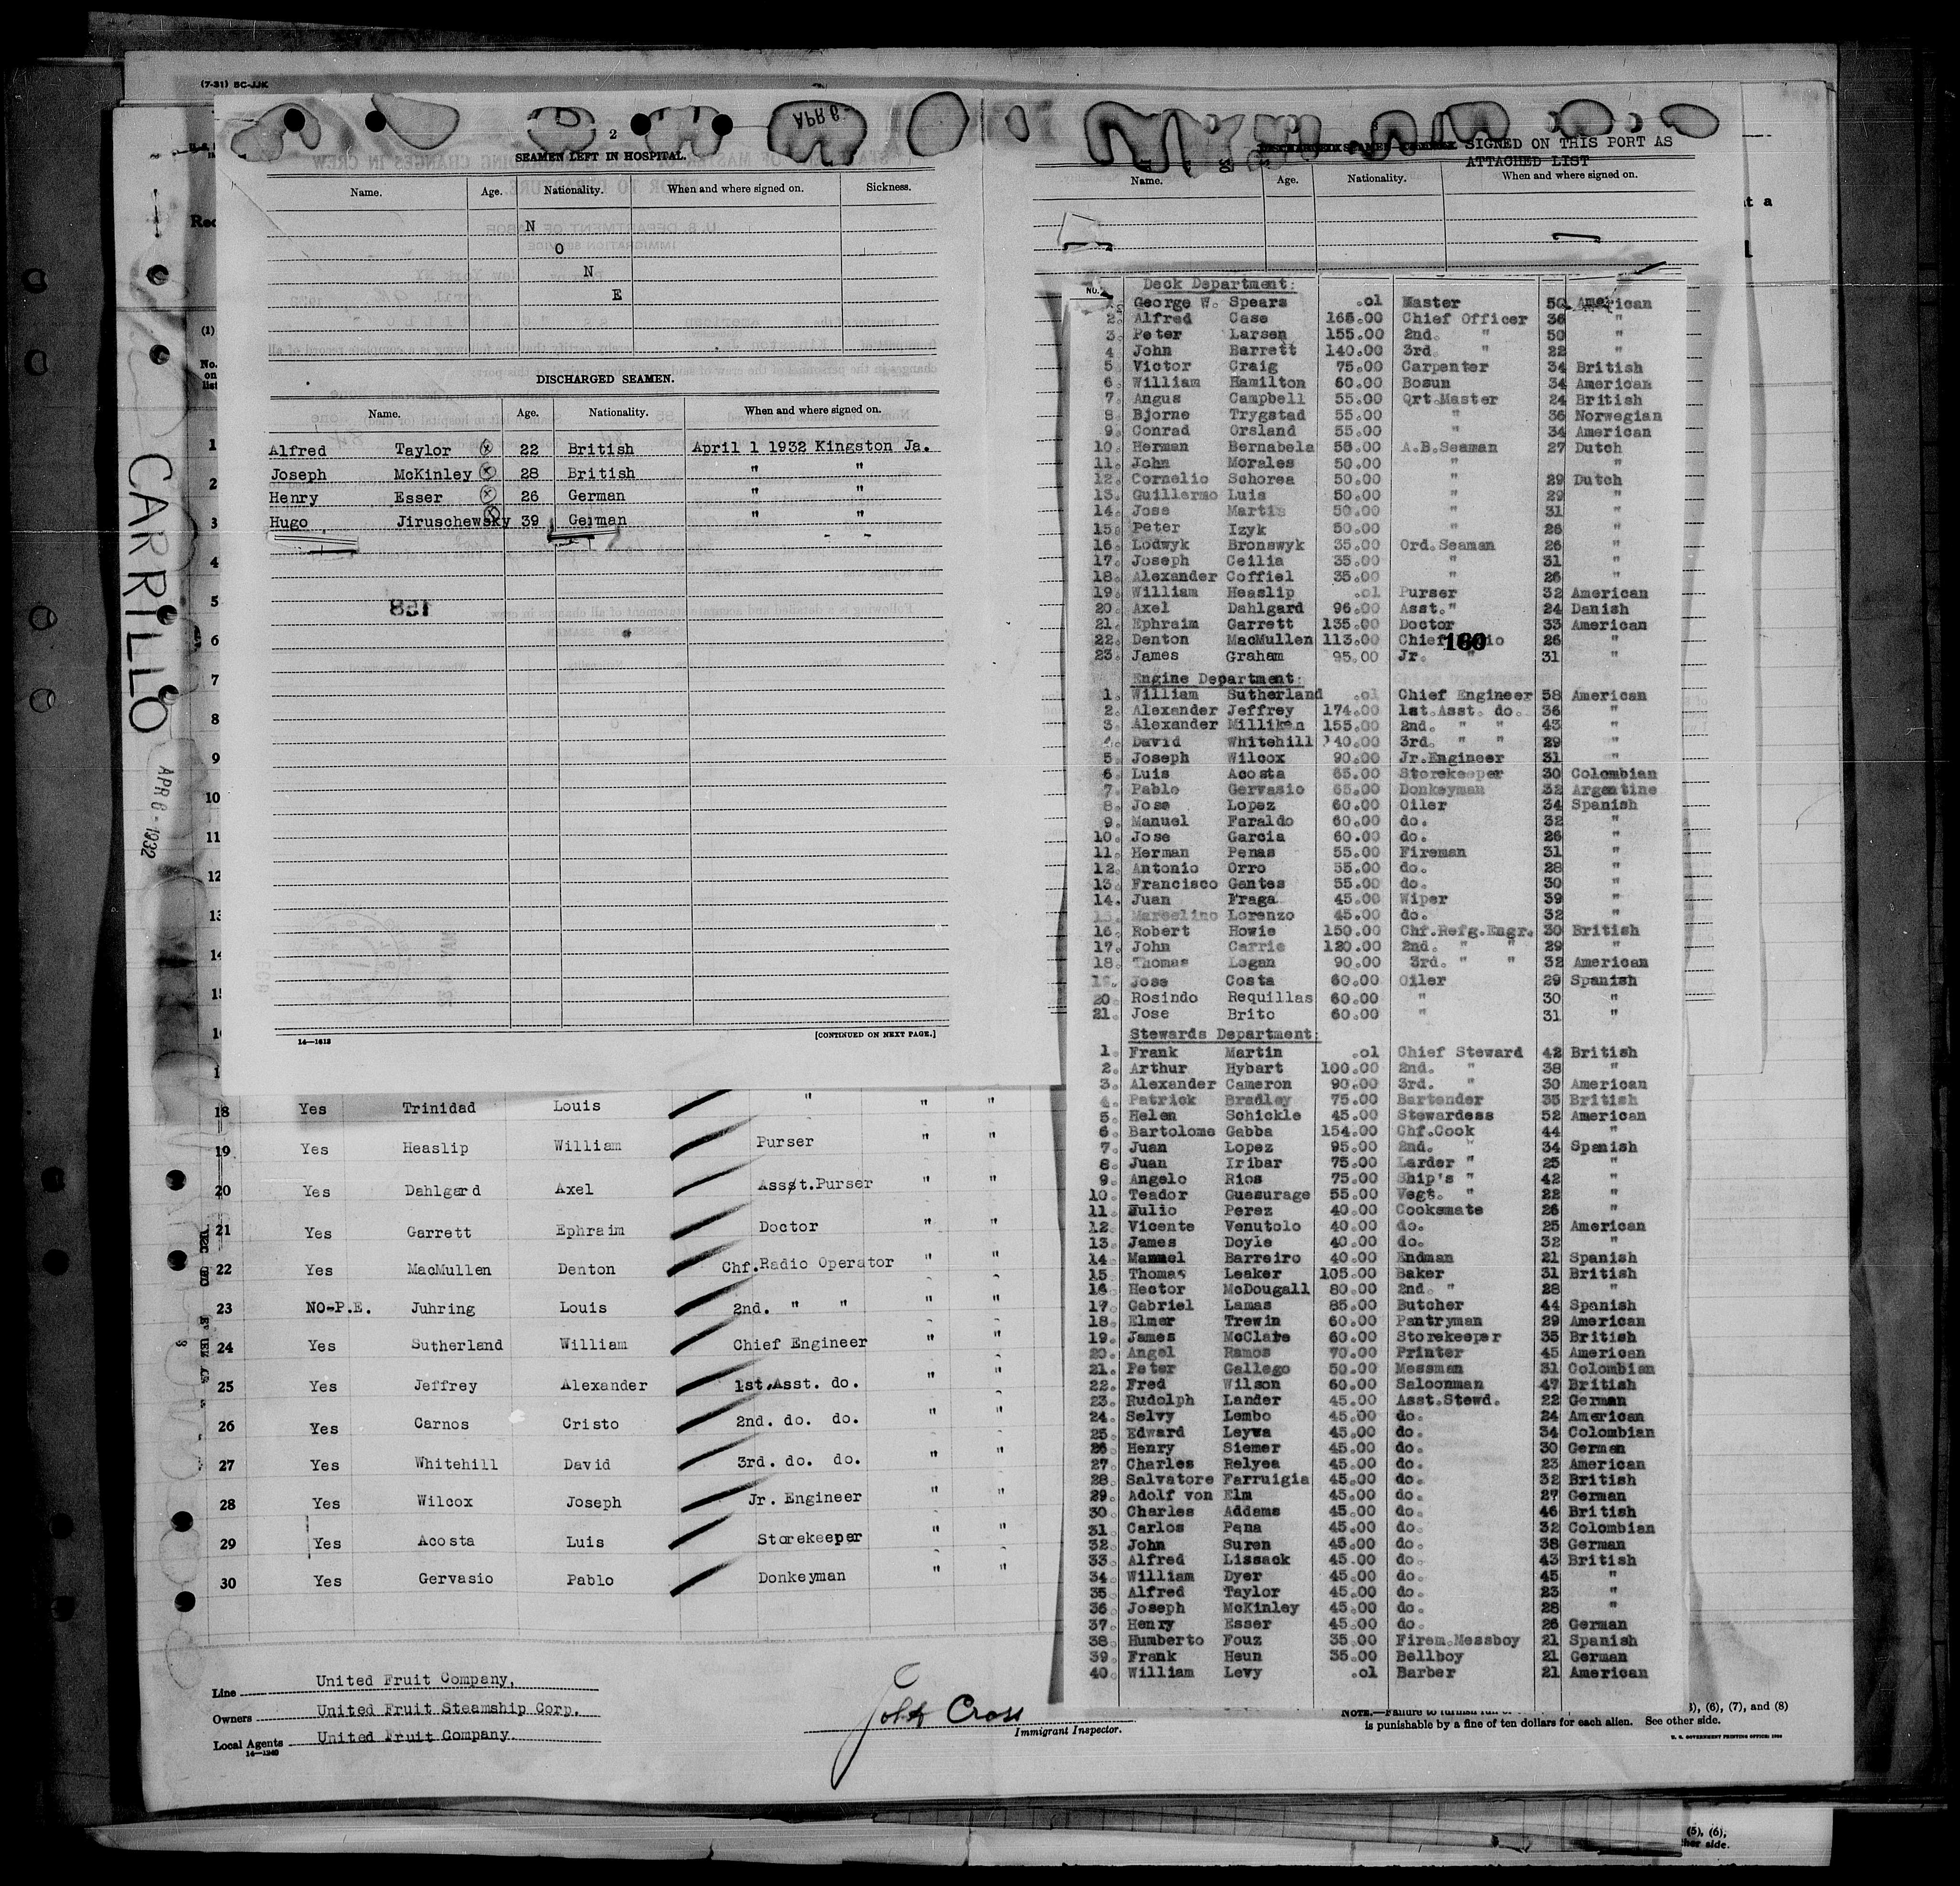 (7-31) BC-JJK
APR 6-
2
SEAMEN LEFT IN HOSPITAL.
Name. Age. Nationality. When and where signed on. Sickness.
N
O
N
E
DISCHARGED SEAMEN.
Name. Age. Nationality. When and where signed on.
Alfred Taylor 22 British April 1 1932 Kingston Ja.
Joseph McKinley 28 British " "
Henry Esser 26 German " "
Hugo Jiruschewsky 39 German " "
158
14—1613
[CONTINUED ON NEXT PAGE.]
CARRILLO
APR 6-1932
Rec
(1)
No. on list
1
2
3
4
5
6
7
8
9
10
11
12
13
14
18 Yes Trinidad Louis " " "
19 Yes Heaslip William Purser " "
20 Yes Dahlgard Axel Assst.Purser " "
21 Yes Garrett Ephraim Doctor " "
22 Yes MacMullen Denton Chf.Radio Operator " "
23 NO-P.E. Juhring Louis 2nd. " " " "
24 Yes Sutherland William Chief Engineer " "
25 Yes Jeffrey Alexander 1st.Asst. do. " "
26 Yes Carnos Cristo 2nd. do. do. " "
27 Yes Whitehill David 3rd. do. do. " "
28 Yes Wilcox Joseph Jr. Engineer " "
29 Yes Acosta Luis Storekeeper " "
30 Yes Gervasio Pablo Donkeyman " "
Line United Fruit Company,
Owners United Fruit Steamship Corp.
Local Agents United Fruit Company.
14—1240
Cross
Immigrant Inspector.
3
SIGNED ON THIS PORT AS
ATTACHED LIST
Name. Age. Nationality. When and where signed on.
No.
Deck Department:
1. George W. Spears .01 Master 50 American
2. Alfred Case 165.00 Chief Officer 36 "
3. Peter Larsen 155.00 2nd. " 50 "
4. John Barrett 140.00 3rd. " 22 "
5. Victor Craig 75.00 Carpenter 34 British
6. William Hamilton 60.00 Bosun 34 American
7. Angus Campbell 55.00 Qrt.Master 24 British
8. Bjorne Trygstad 55.00 " 36 Norwegian
9. Conrad Orsland 55.00 " 34 American
10. Herman Bernabela 55.00 A.B.Seaman 27 Dutch
11. John Morales 50.00 " "
12. Cornelio Schorea 50.00 " 29 Dutch
13. Guillermo Luis 50.00 " 29 "
14. Jose Martis 50.00 " 31 "
15. Peter Izyk 50.00 " 26 "
16. Lodwyk Bronswyk 35.00 Ord.Seaman 26 "
17. Joseph Ceilia 35.00 " 31 "
18. Alexander Coffiel 35.00 " 26 "
19. William Heaslip .01 Purser 32 American
20. Axel Dahlgard 96.00 Asst." 24 Danish
21. Ephraim Garrett 135.00 Doctor 33 American
22. Denton MacMullen 113.00 Chief 160 io 26 "
23. James Graham 95.00 Jr. " 31 "
Engine Department:
1. William Sutherland .01 Chief Engineer 58 American
2. Alexander Jeffrey 174.00 1st.Asst. do. 36 "
3. Alexander Milliken 155.00 2nd. " " 43 "
4. David Whitehill 140.00 3rd. " " 29 "
5. Joseph Wilcox 90.00 Jr.Engineer 31 "
6. Luis Acosta 65.00 Storekeeper 30 Colombian
7. Pablo Gervasio 65.00 Donkeyman 32 Argentine
8. Jose Lopez 60.00 Oiler 34 Spanish
9. Manuel Faraldo 60.00 do. 32 "
10. Jose Garcia 60.00 do. 26 "
11. Herman Penas 55.00 Fireman 31 "
12. Antonio Orro 55.00 do. 28 "
13. Francisco Gantes 55.00 do. 30 "
14. Juan Fraga 45.00 Wiper 39 "
15. Marcelino Lorenzo 45.00 do. 32 "
16. Robert Howie 150.00 Chf.Refg.Engr. 30 British
17. John Carrie 120.00 2nd. " " 29 "
18. Thomas Logan 90.00 3rd. " " 32 American
19. Jose Costa 60.00 Oiler 29 Spanish
20. Rosindo Requillas 60.00 " 30 "
21. Jose Brito 60.00 " 31 "
Stewards Department:
1. Frank Martin .01 Chief Steward 42 British
2. Arthur Hybart 100.00 2nd. " 38 "
3. Alexander Cameron 90.00 3rd. " 30 American
4. Patrick Bradley 75.00 Bartender 35 British
5. Helen Schickle 45.00 Stewardess 52 American
6. Bartolome Gabba 154.00 Chf.Cook 44 "
7. Juan Lopez 95.00 2nd. " 34 Spanish
8. Juan Iribar 75.00 Larder " 25 "
9. Angelo Rios 75.00 Ship's " 42 "
10. Teador Guesurage 55.00 Vegt. " 22 "
11. Julio Perez 40.00 Cooksmate 26 "
12. Vicente Venutolo 40.00 do. 25 American
13. James Doyle 40.00 do. 32 "
14. Manuel Barreiro 40.00 Endman 21 Spanish
15. Thomas Leaker 105.00 Baker 31 British
16. Hector McDougall 80.00 2nd. " 28 "
17. Gabriel Lamas 85.00 Butcher 44 Spanish
18. Elmer Trewin 60.00 Pantryman 29 American
19. James McClare 60.00 Storekeeper 35 British
20. Angel Ramos 70.00 Printer 45 American
21. Peter Gallego 50.00 Messman 31 Colombian
22. Fred Wilson 60.00 Saloonman 47 British
23. Rudolph Lander 45.00 Asst.Stewd. 22 German
24. Selvy Lembo 45.00 do. 24 American
25. Edward Leywa 45.00 do. 34 Colombian
26 Henry Siemer 45.00 do. 30 German
27. Charles Relyea 45.00 do. 23 American
28. Salvatore Farruigia 45.00 do. 32 British
29. Adolf von Elm 45.00 do. 27 German
30. Charles Addams 45.00 do. 46 British
31. Carlos Pena 45.00 do. 32 Colombian
32. John Suren 45.00 do. 38 German
33. Alfred Lissack 45.00 do. 43 British
34. William Dyer 45.00 do. 45 "
35 Alfred Taylor 45.00 do. 23 "
36. Joseph McKinley 45.00 do. 28 "
37. Henry Esser 45.00 do. 26 German
38. Humberto Fouz 35.00 Firem.Messboy 21 Spanish
39. Frank Heun 35.00 Bellboy 21 German
40. William Levy .01 Barber 21 American
NOTE.—Failure to furnish 3), (6), (7), and (8)
is punishable by a fine of ten dollars for each alien. See other side.
U. S. GOVERNMENT PRINTING OFFICE
(5), (6),
her side.